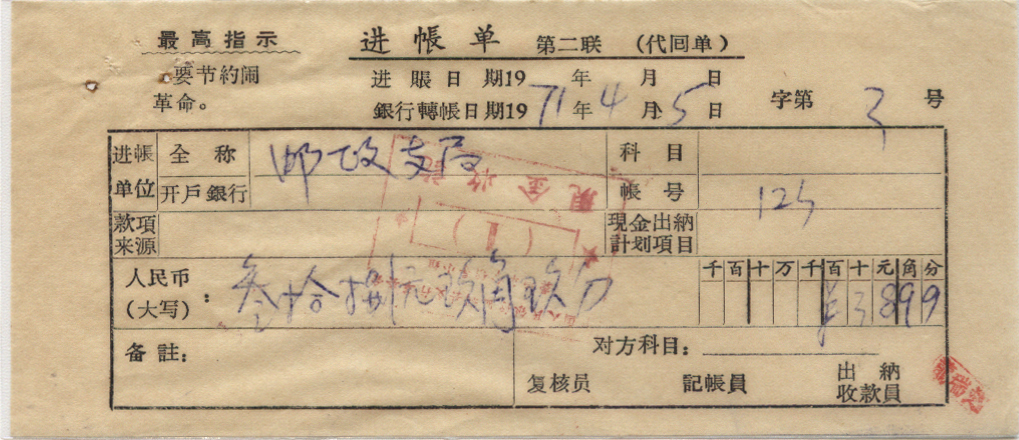 最高指示
要节約闹
革命。
进帳单 第二联 (代回单)
进賬日期19 年 月 日
銀行轉帳日期1971年4月5日
字第3号
进帳单位 全称 邮政支局 科目
开戶銀行 帳号 125
款項来源 現金出納計划項目
人民币(大写): 叁拾捌元玖角玖分
千百十万千百十元角分
¥3899
备註:
对方科目:
复核员 記帳員 出納收款員
現金收訖
(1)